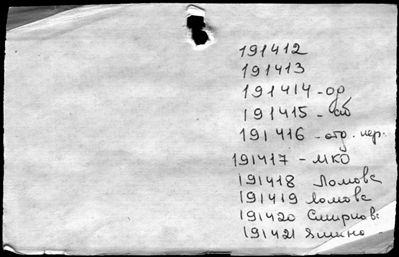 191412
191413
191414 - ор
191415 - сб
191416 - отд. пер.
191417 - МКО
191418 Ломова
191419 Ломова
191420 Смирнов
191421